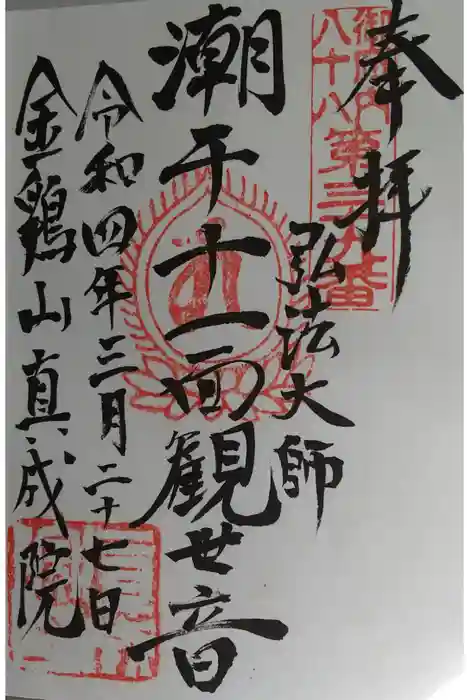 奉拝
御府内
八十八
第三十九番
弘法大師
潮干十一面観世音
令和四年三月二十七日
金鶏山真成院